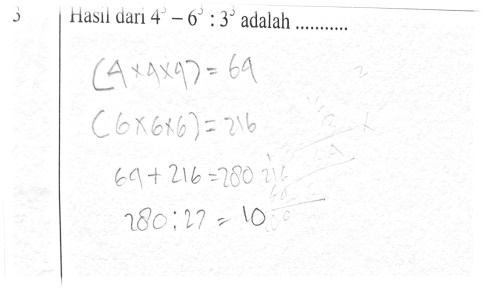 3 Hasil dari 4³ – 6³ : 3³ adalah ...........
(4×4×4) = 64
(6×6×6) = 216
64 + 216 = 280
280 : 27 = 10